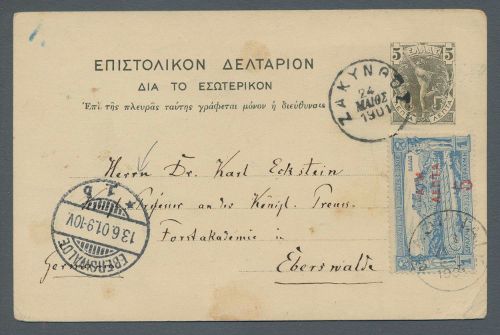 ΕΠΙΣΤΟΛΙΚΟΝ ΔΕΛΤΑΡΙΟΝ
ΔΙΑ ΤΟ ΕΣΩΤΕΡΙΚΟΝ
Ἐπὶ τῆς πλευρᾶς ταύτης γράφεται μόνον ἡ διεύθυνσις
5 ΕΛΛΑΣ 5
ΛΕΠΤΑ
ΖΑΚΥΝΘΟΣ
24
ΜΑΪΟΣ
1901
Herrn Dr. Karl Eckstein
Professor an der Königl. Preuss.
Forstakademie in
Eberswalde
ΛΕΠΤΑ 5
EBERSWALDE
13.6.01.9-10V.